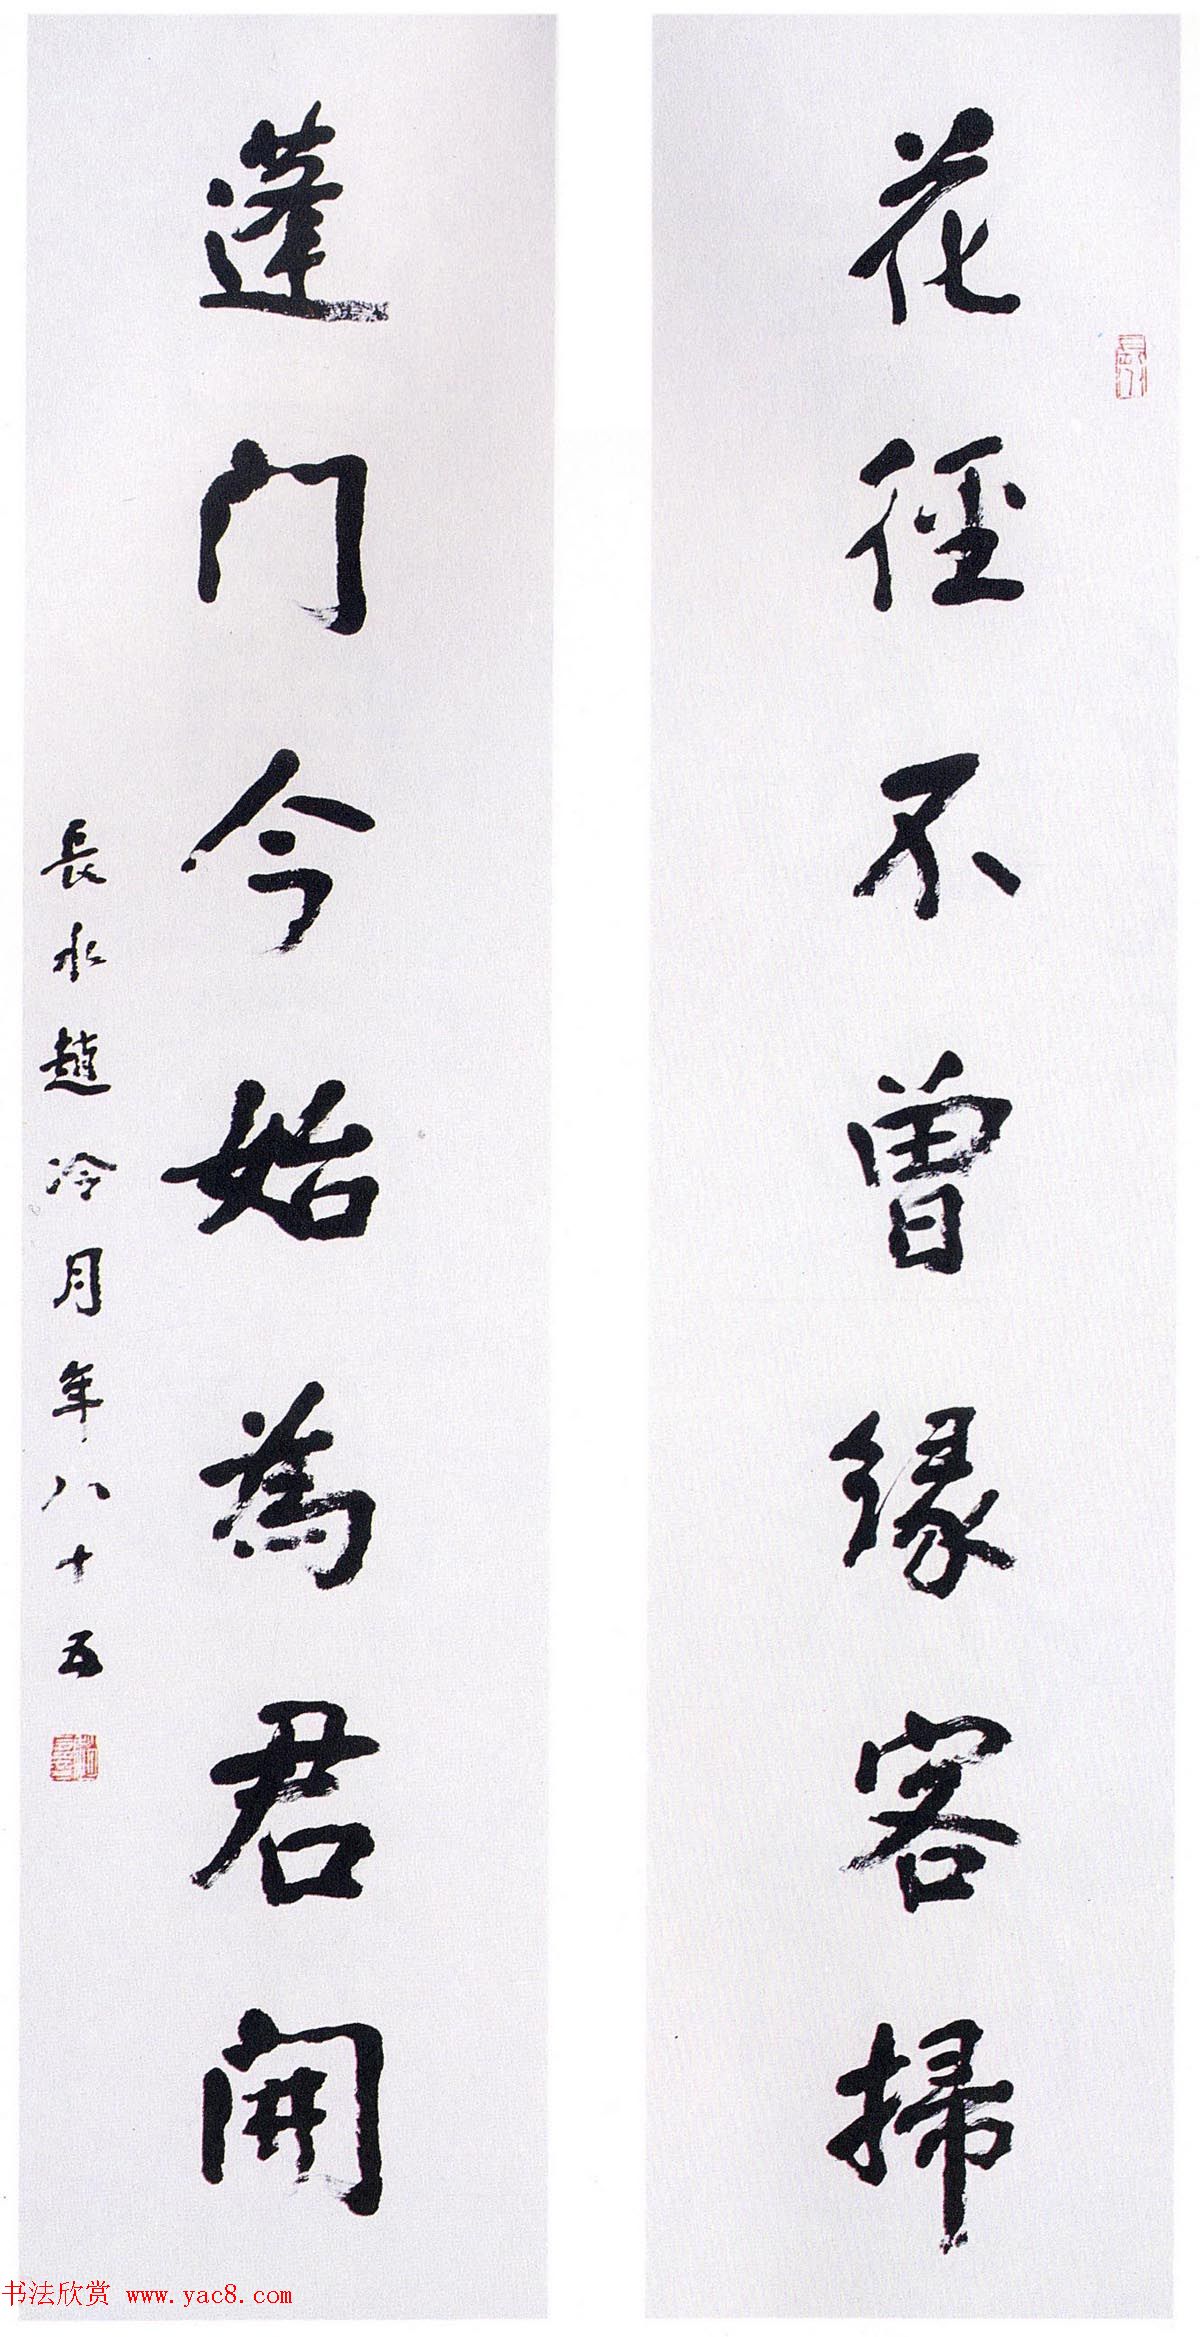 花徑不曾緣客掃
蓬门今始為君開
長水趙冷月年八十五
书法欣赏 www.yac8.com